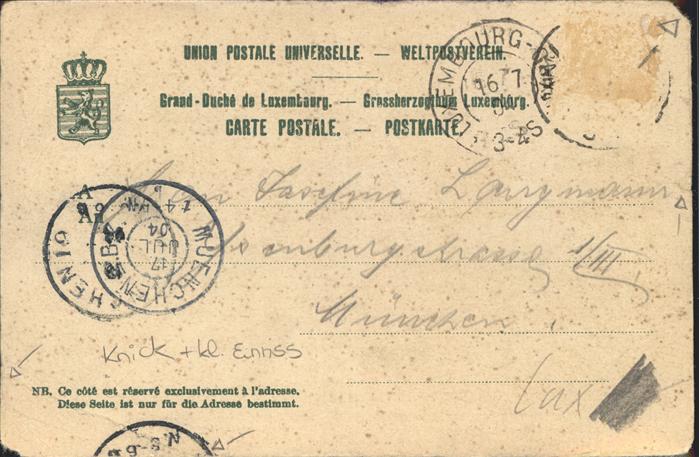 UNION POSTALE UNIVERSELLE. — WELTPOSTVEREIN.
Grand-Duché de Luxembourg. — Grossherzogthum Luxemburg.
CARTE POSTALE. — POSTKARTE.
LUXEMBOURG-GARE
16 7
3-4 S
Josefine Langmann
1/III
München
MUENCHEN
17 JUL 04
CHEN 19
Knick + kl. Einriss
NB. Ce côté est réservé exclusivement à l'adresse.
Diese Seite ist nur für die Adresse bestimmt.
Lux
N. 8-9